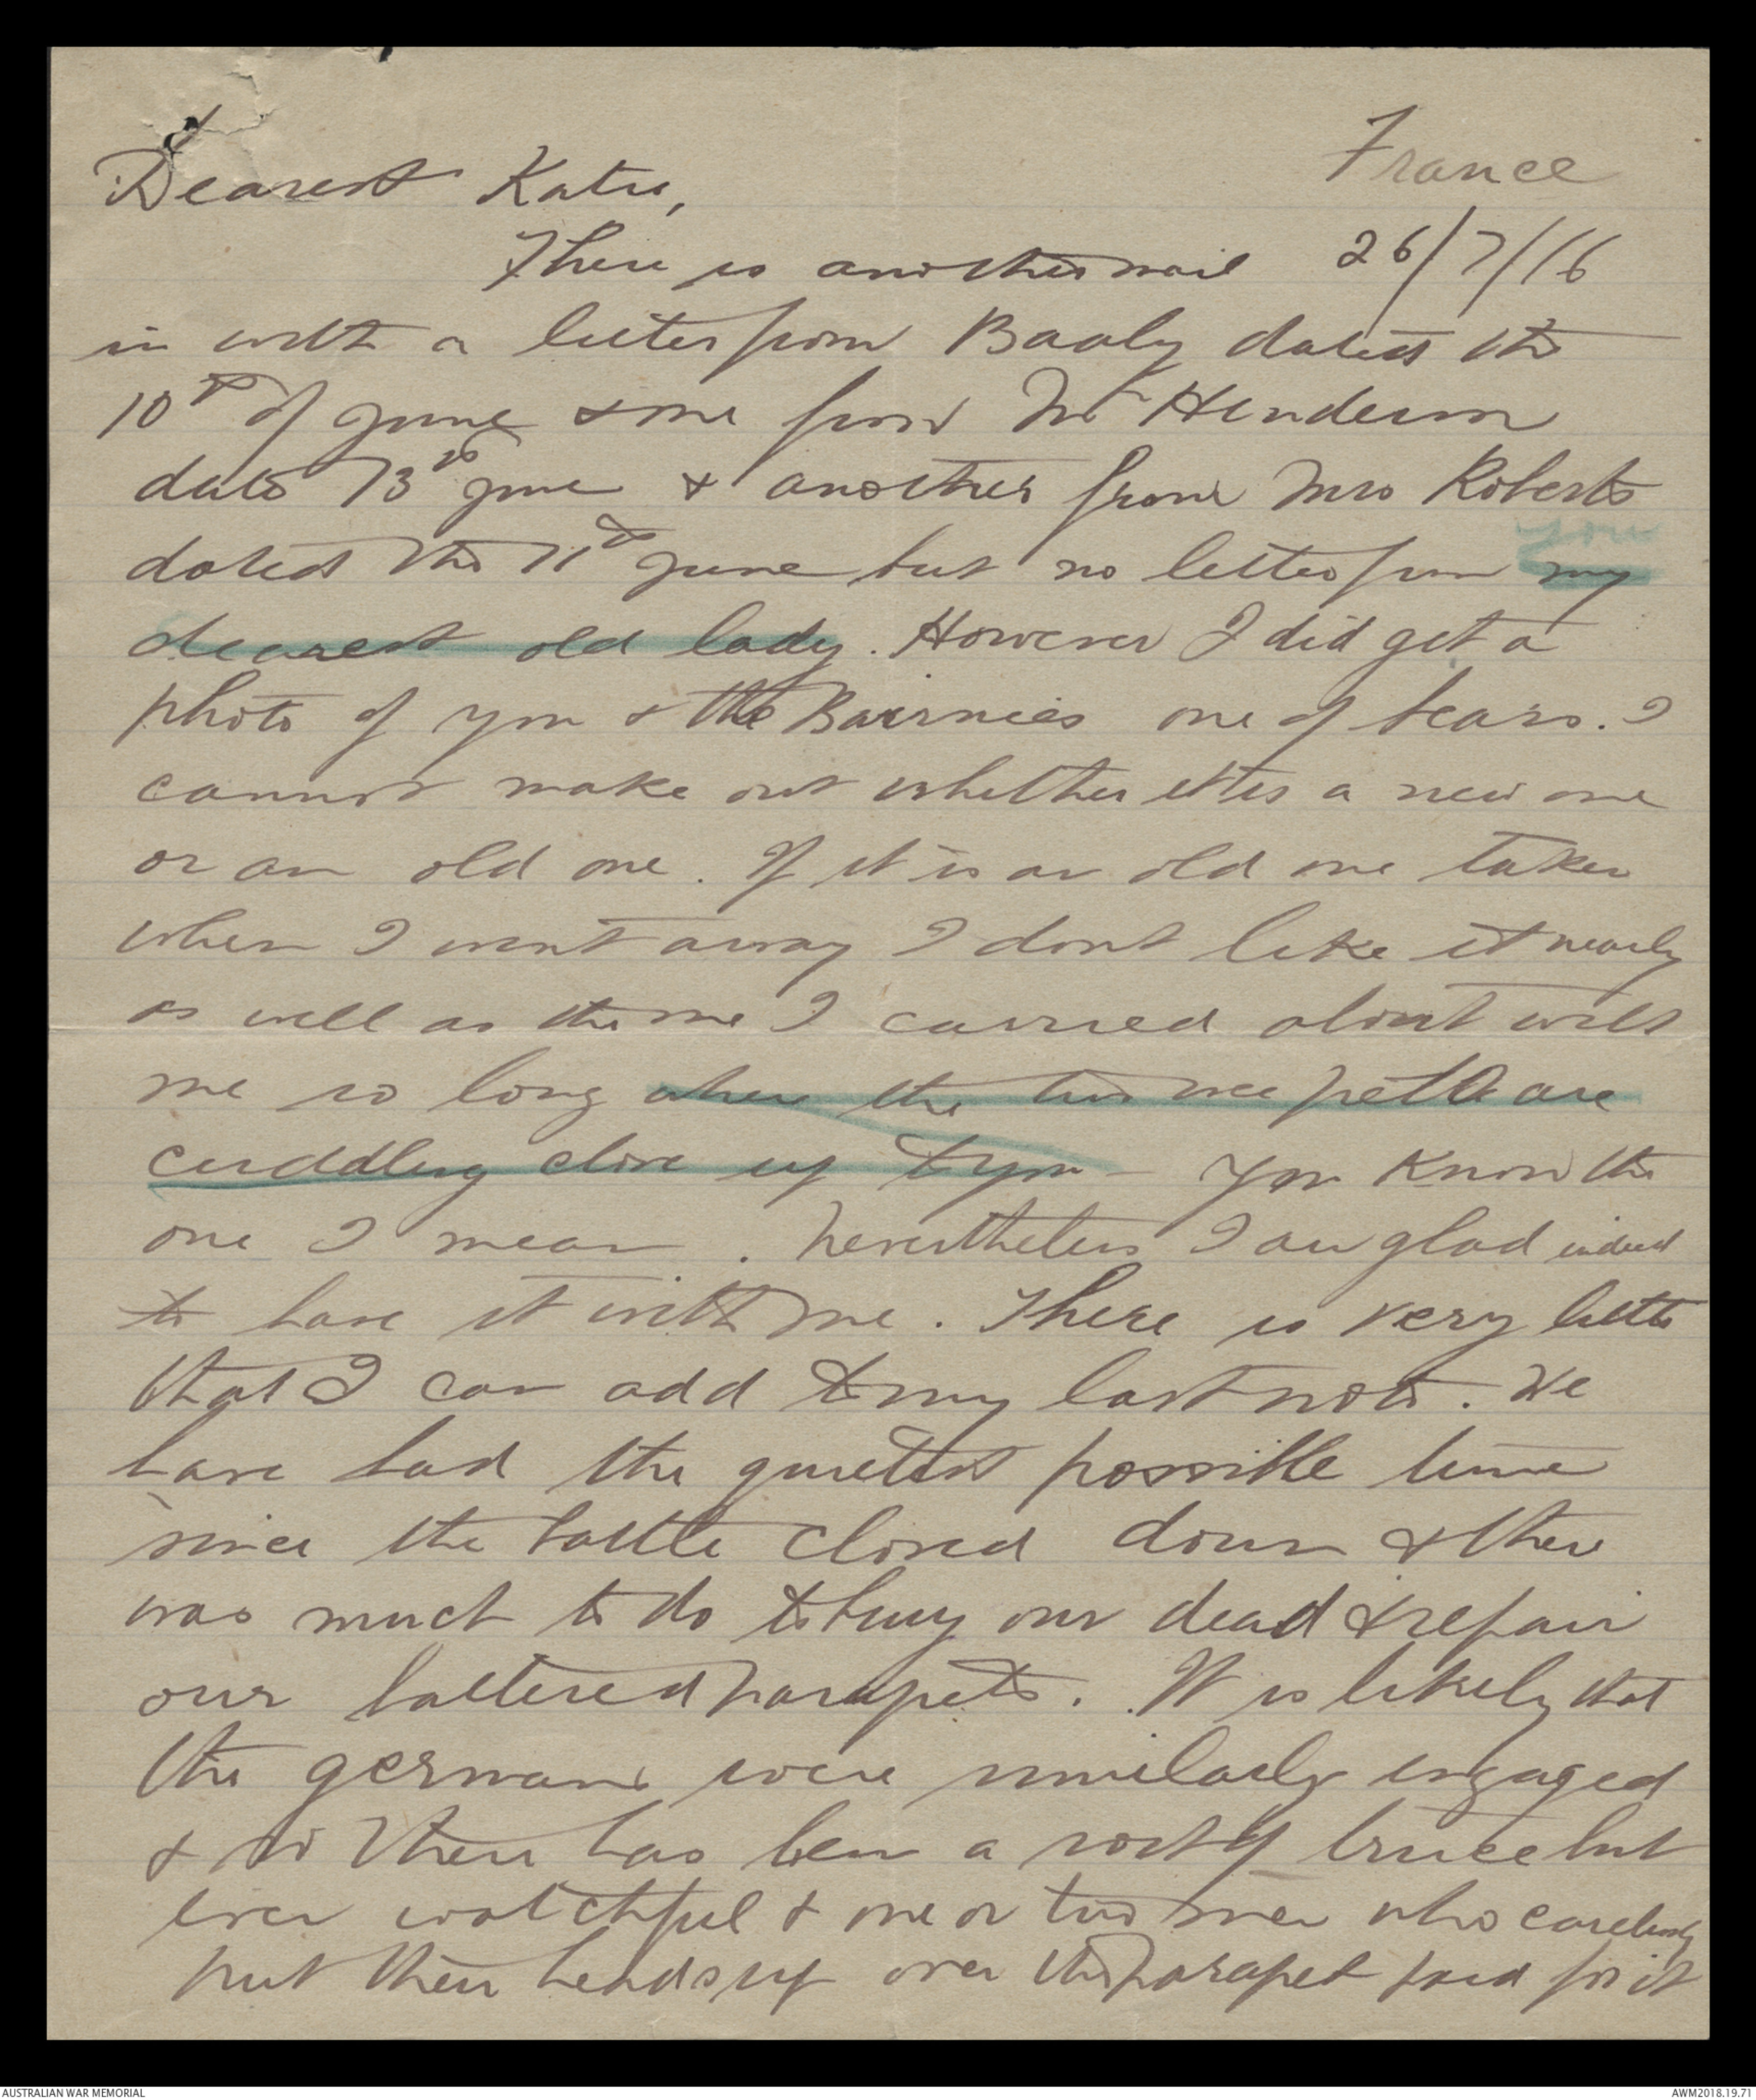 France
Dearest Katie,
There is another mail 26/7/16
in with a letter from Baaly dated the
10th of June & one from Mr Henderson
date 13th June & another from Mrs Roberts
dated the 11th June but no letter from you my
dearest old lady. However I did get a
photo of you & the Bairnies one of Fears. I
cannot make out whether it is a new one
or an old one. If it is an old one taken
when I went away I dont like it nearly
as well as the one I carried about with
me so long where the two wee petts are
cuddling close up to you – you know the
one I mean. Nevertheless I am glad indeed
to have it with me. There is very little
that I can add to my last note. We
have had the quietest possible time
since the battle closed down & there
was much to do to bury our dead & repair
our battered parapets. It is likely that
the germans were similarly engaged
& so there has been a sort of truce but
ever watchful & one or two men who carelessly
put their heads up over the parapet paid for it
AUSTRALIAN WAR MEMORIAL
AWM2018.19.71